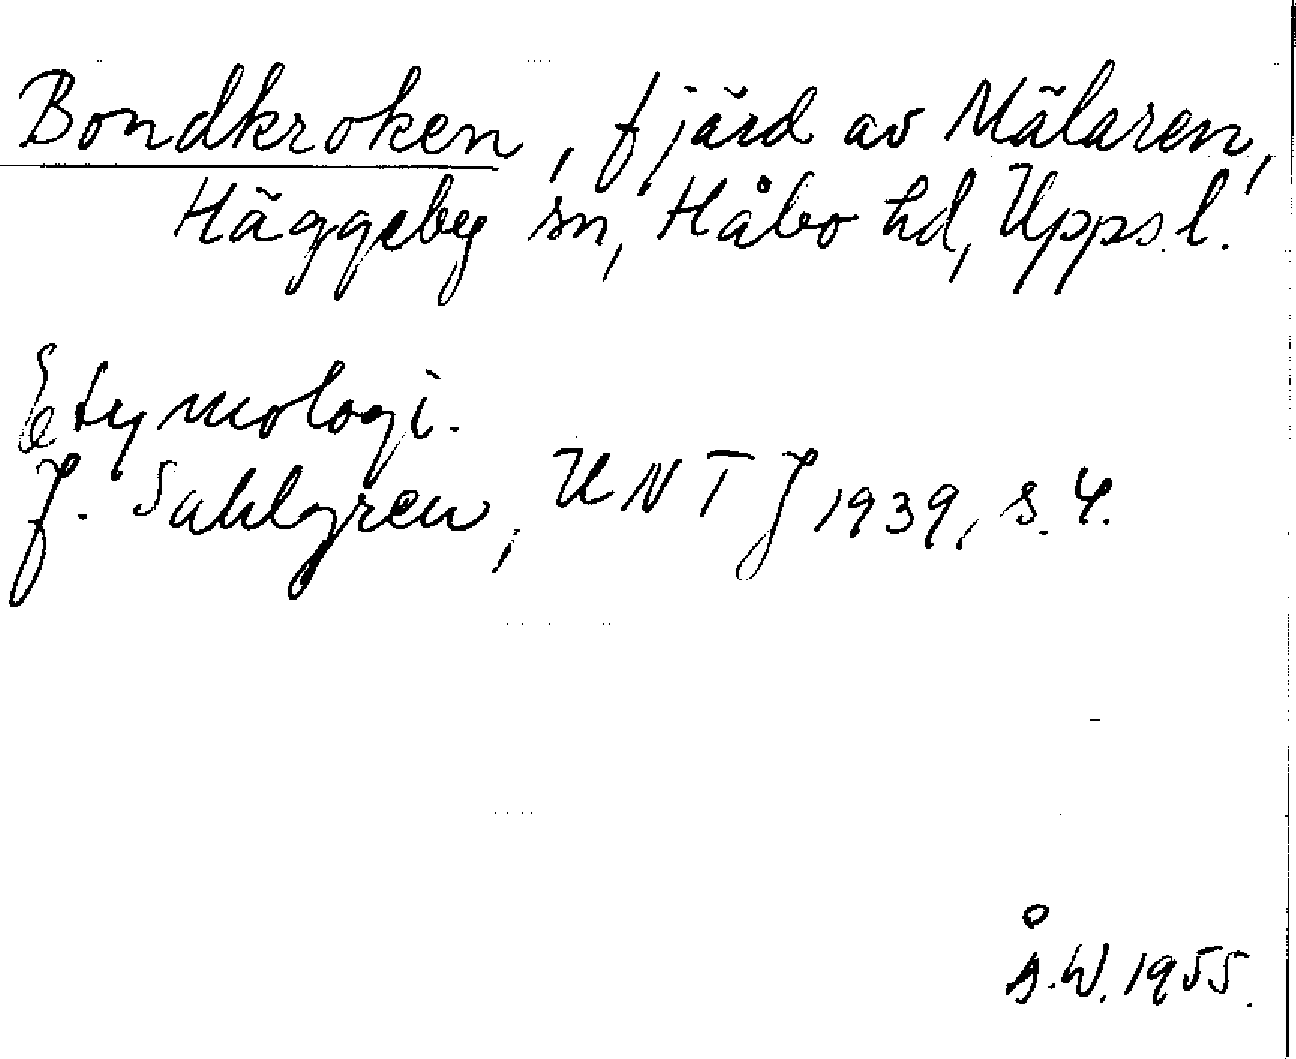 Bondkroken, fjärd av Mälaren,
Häggeby sn, Håbo hd, Upps. l.
Etymologi.
J. Sahlgren, UNT J 1939, s. 4.
Å.W. 1955.